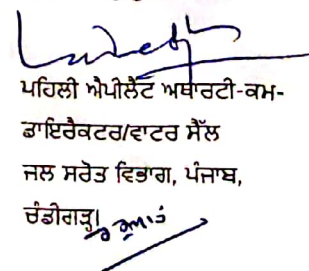 ਪਹਿਲੀ ਐਪੀਲੈਂਟ ਅਥਾਰਟੀ-ਕਮ-
ਡਾਇਰੈਕਟਰ/ਵਾਟਰ ਸੈੱਲ
ਜਲ ਸਰੋਤ ਵਿਭਾਗ, ਪੰਜਾਬ,
ਚੰਡੀਗੜ੍ਹ।